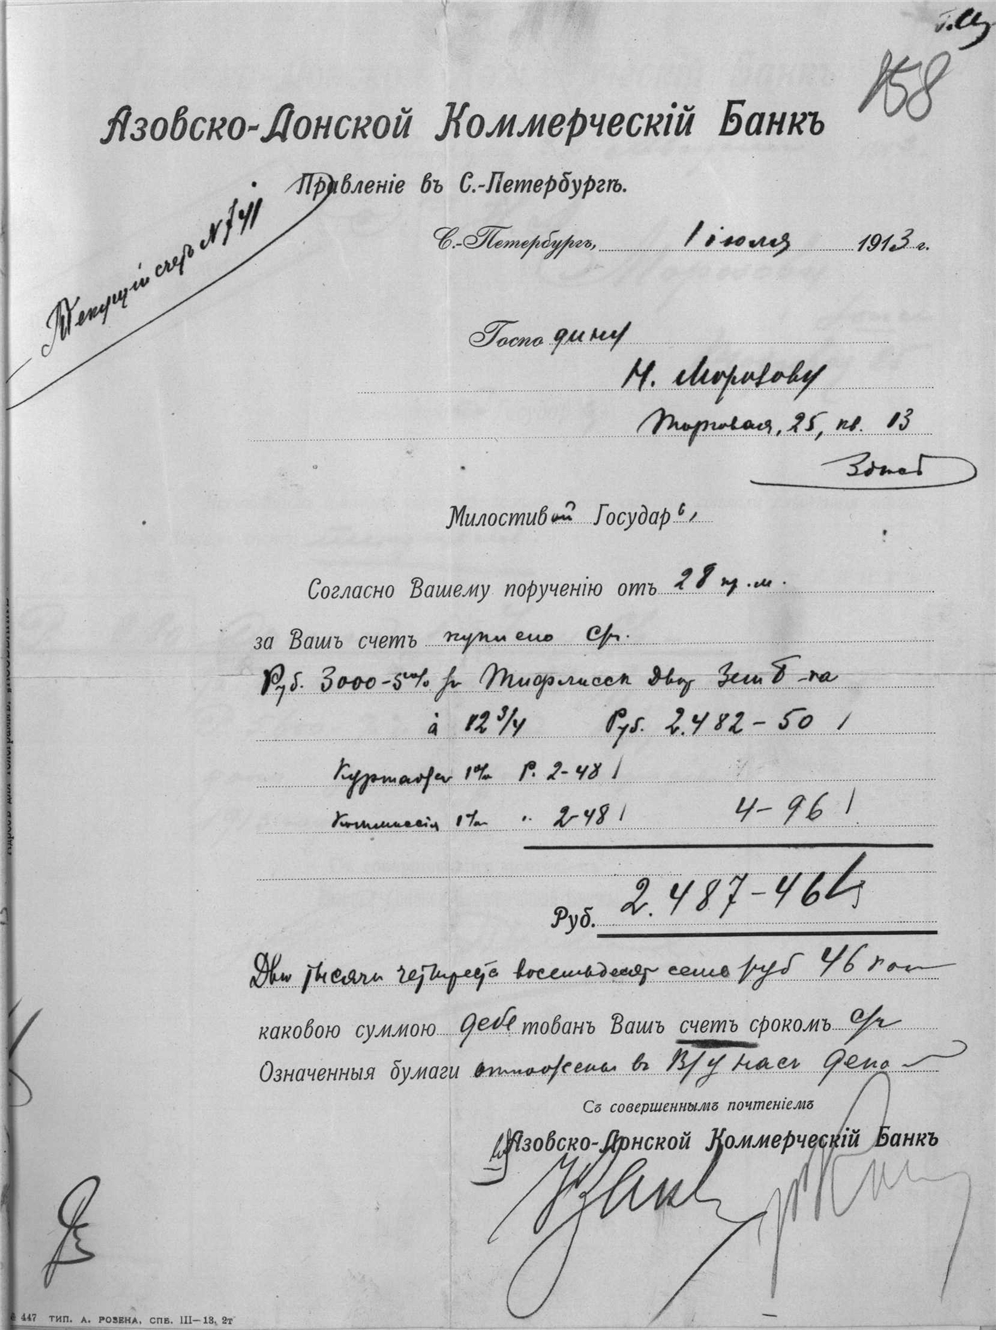 158
Азовско-Донской Коммерческій Банкъ
Правленіе въ С.-Петербургѣ.
Текущій счетъ N 741
С.-Петербургъ, 1 іюля 1913 г.
Господину
Н. Морозову
Торговая, 25, кв. 13
Здѣсь
Милостивый Государь,
Согласно Вашему порученію отъ 28 пр. м.
за Вашъ счетъ куплено с/г.
Руб. 3000 - 5% Тифлисск Двор Зем Б-ка
à 82 3/4 Руб. 2.482 - 50
Куртажъ 1‰ Р. 2-48
Коммиссія 1‰ " 2-48 4-96
Руб. 2.487-46
Двѣ тысячи четыреста восемьдесят семь руб 46 коп
каковою суммою дебетованъ Вашъ счетъ срокомъ с/г
Означенныя бумаги отложены въ В/у насъ депо
Съ совершеннымъ почтеніемъ
Азовско-Донской Коммерческій Банкъ
447 ТИП. А. РОЗЕНА, СПБ. III—13, 2т